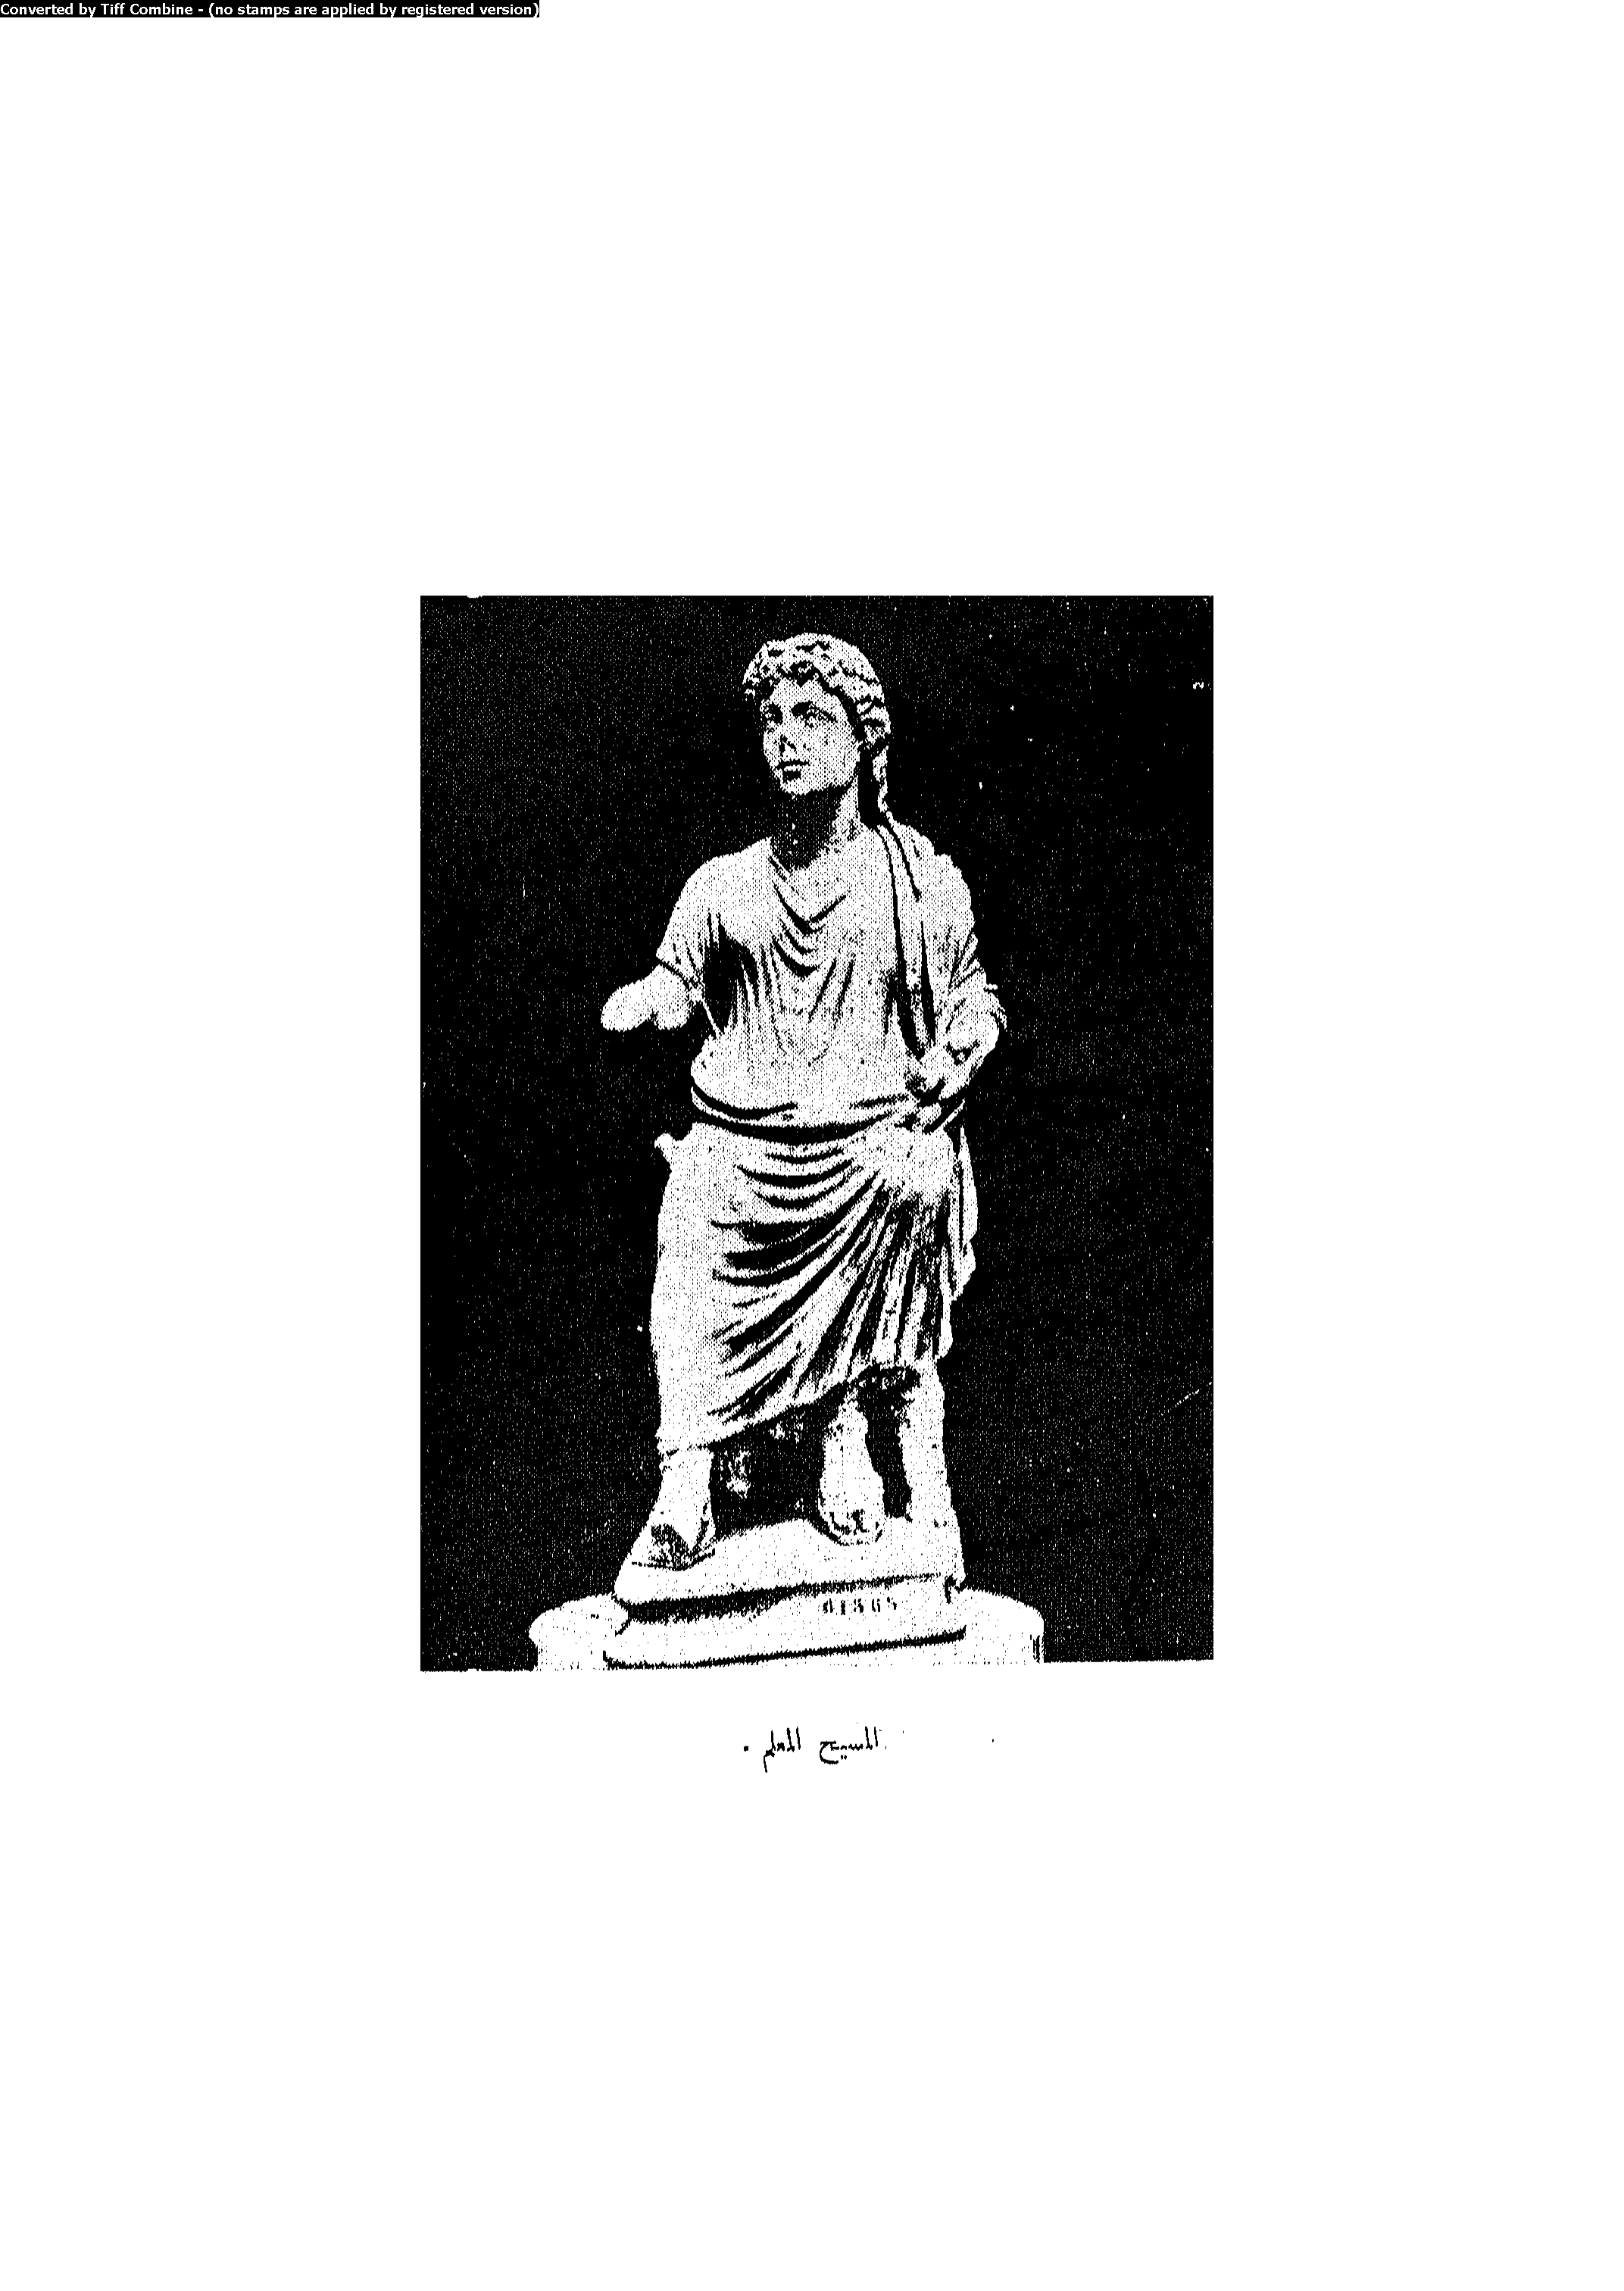 Converted by Tiff Combine - (no stamps are applied by registered version)
61565
المسيح المعلم .